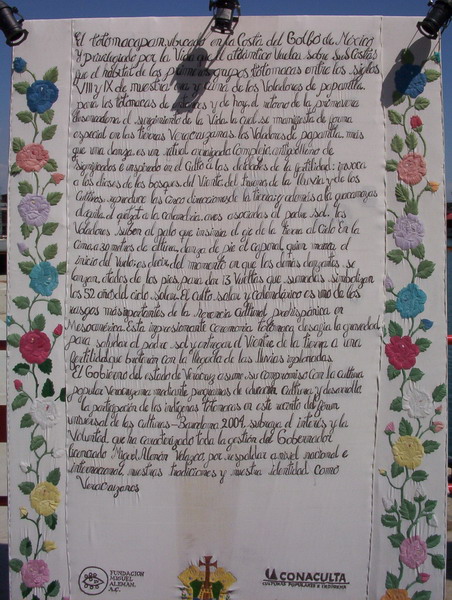 El totonacapan, ubicado en la Costa del Golfo de México
y privilegiado por la Vida que el atlántico Vuelca sobre sus Costas
fue el hábitat de los primeros grupos totonacas entre los siglos
VIII y IX de nuestra era y cuna de los Voladores de papantla.
para los totonacas de ayer y de hoy, el retorno de la primavera
desencadena el surgimiento de la Vida, la cual se manifiesta de forma
especial en las tierras Veracruzanas. los Voladores de papantla, más
que una danza, es un ritual arraigado Complejo, antiquísimo de
Significados e inspirado en el Culto a las deidades de la fertilidad: invoca
a los dioses de los bosques, del Viento, del trueno, de la lluvia y de los
Cultivos, reproduce los Cinco direcciones de la tierra; y además a la guacamaya
el águila, el quetzal y la calandria, aves asociadas al padre sol. los
Voladores suben al palo que insinúa el eje de la tierra al Cielo en la
Cima, a 30 metros de altura, danza de pie el Caporal, quien marca el
inicio del Vuelo, es decir, del momento en que los demás danzantes se
lanzan, atados de los pies, para dar 13 Vueltas que sumadas simbolizan
los 52 años del ciclo solar. El Culto solar y Calendárico es uno de los
rasgos más importantes de la herencia Cultural prehispánica en
Mesoamérica. Esta impresionante Ceremonia totonaca desafía la gravedad
para saludar al padre sol y entregar al Vientre de la tierra a una
fertilidad que brotarán con la llegada de las lluvias imploradas.
El Gobierno del estado de Veracruz asume su compromiso con la Cultura
popular Veracruzana mediante programas de educación, Cultura y desarrollo.
la participación de los indígenas totonacas en este recinto del forum
universal de las Culturas - Barcelona 2004, subraya el interés y la
Voluntad que ha caracterizado toda la gestión del Gobernador
licenciado Miguel Alemán Velazco, por respaldar a nivel nacional e
internacional, nuestras tradiciones y nuestra identidad Como
Veracruzanos.
FUNDACION
MIGUEL
ALEMAN.
A.C.
CONACULTA
CULTURAS POPULARES E INDIGENAS